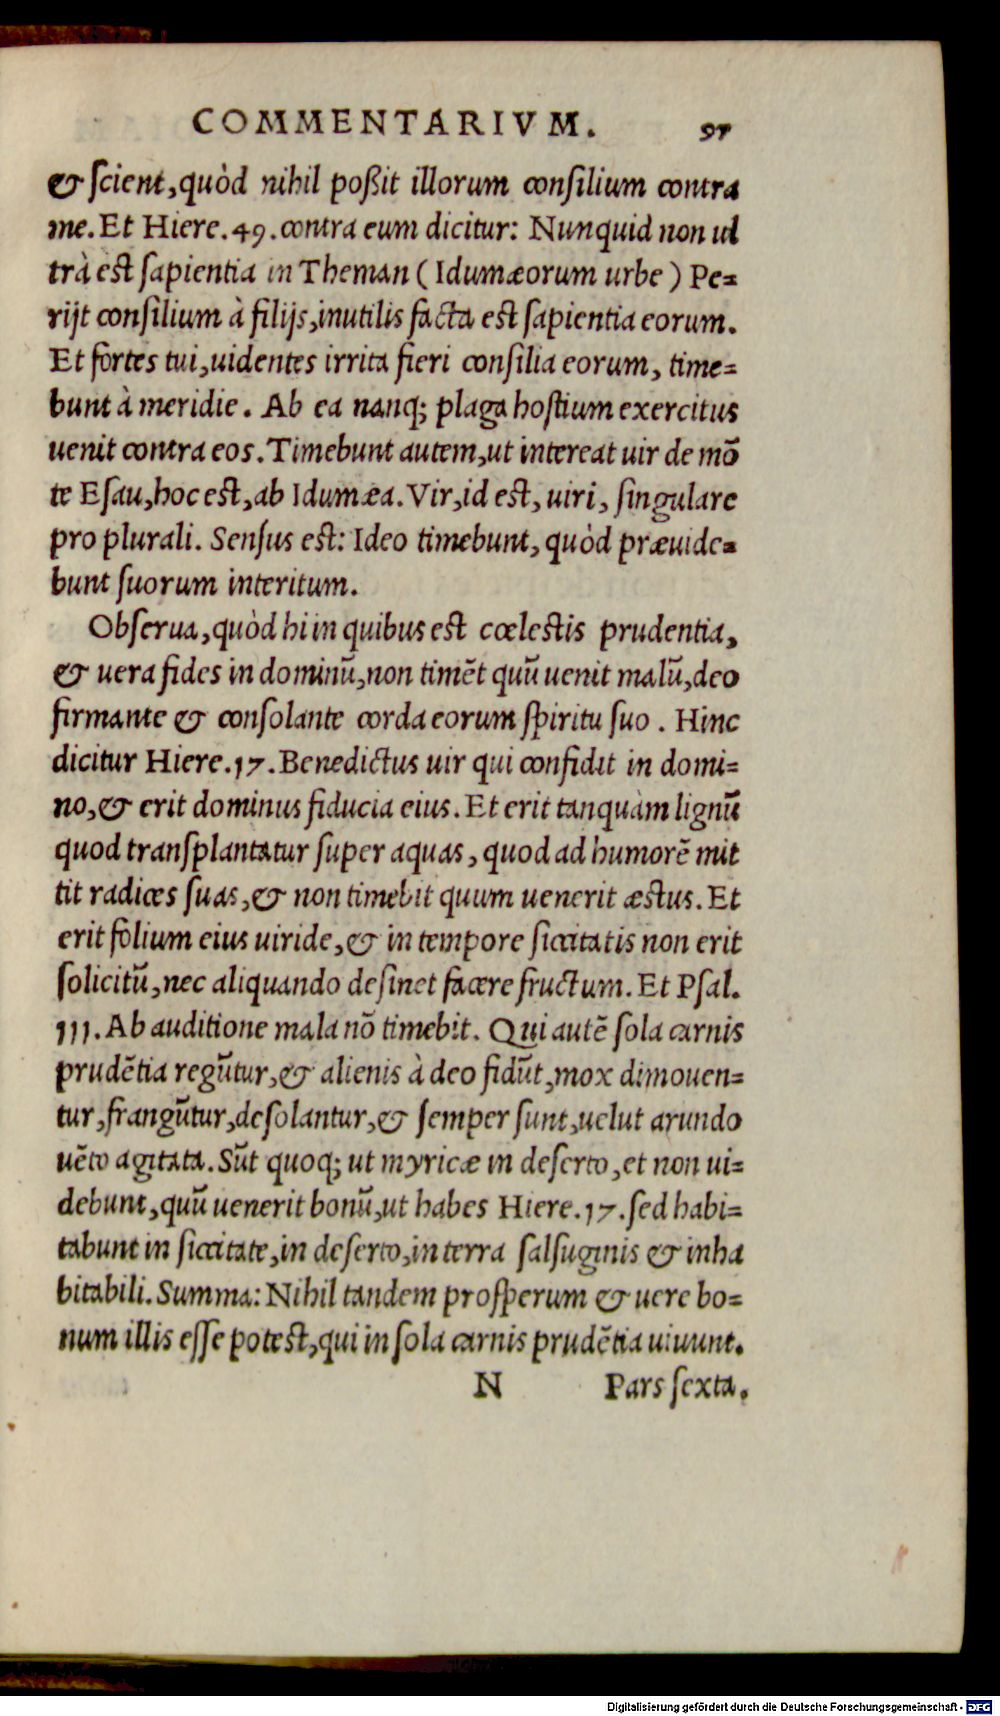 COMMENTARIVM. 97
& ſcient, quòd nihil poßit illorum conſilium contra
me. Et Hiere. 49. contra eum dicitur: Nunquid non ul
trà eſt ſapientia in Theman (Idumæorum urbe) Pe=
rijt conſilium à filijs, inutilis facta eſt ſapientia eorum.
Et fortes tui, uidentes irrita fieri conſilia eorum, time=
bunt à meridie. Ab ea nanq; plaga hoſtium exercitus
uenit contra eos. Timebunt autem, ut intereat uir de mõ
te Eſau, hoc eſt, ab Idumæa. Vir, id eſt, uiri, ſingulare
pro plurali. Senſus eſt: Ideo timebunt, quòd præuide=
bunt ſuorum interitum.
Obſerua, quòd hi in quibus eſt cœleſtis prudentia,
& uera fides in dominũ, non timẽt quũ uenit malũ, deo
firmante & conſolante corda eorum ſpiritu ſuo. Hinc
dicitur Hiere. 17. Benedictus uir qui confidit in domi=
no, & erit dominus fiducia eius. Et erit tanquàm lignũ
quod tranſplantatur ſuper aquas, quod ad humorẽ mit
tit radices ſuas, & non timebit quum uenerit æſtus. Et
erit folium eius uiride, & in tempore ſiccitatis non erit
ſolicitũ, nec aliquando deſinet facere fructum. Et Pſal.
111. Ab auditione mala nõ timebit. Qui autẽ ſola carnis
prudẽtia regũtur, & alienis à deo fidũt, mox dimouen=
tur, frangũtur, deſolantur, & ſemper ſunt, uelut arundo
uẽto agitata. Sũt quoq; ut myricæ in deſerto, et non ui=
debunt, quũ uenerit bonũ, ut habes Hiere. 17. ſed habi=
tabunt in ſiccitate, in deſerto, in terra ſalſuginis & inha
bitabili. Summa: Nihil tandem proſperum & uere bo=
num illis eſſe poteſt, qui in ſola carnis prudẽtia uiuunt.
N Pars ſexta.
Digitalisierung gefördert durch die Deutsche Forschungsgemeinschaft - DFG